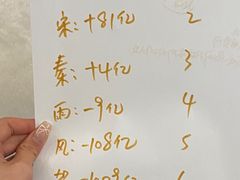 宋: +81亿 2
秦: +4亿 3
雨: -9亿 4
风: -108亿 5